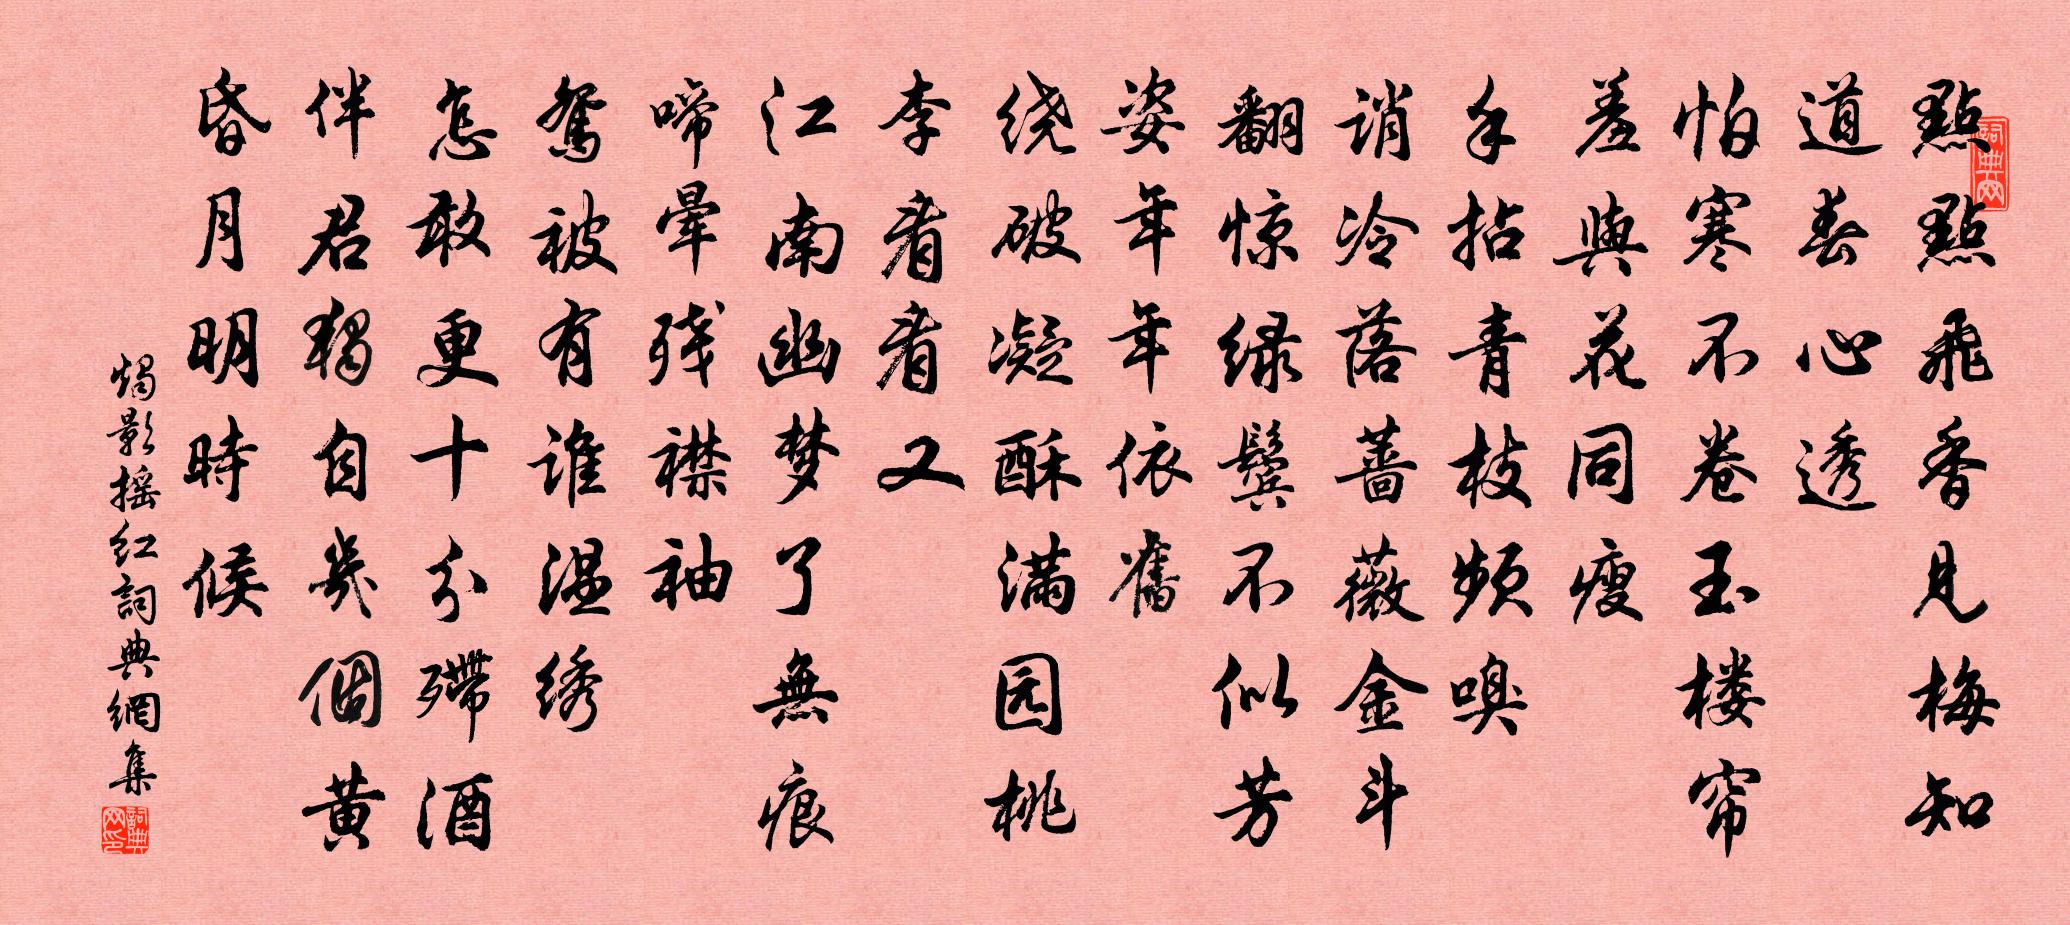 點點飛香見梅知
道春心透
怕寒不卷玉楼帘
羞與花同瘦
手拈青枝频嗅
诮冷落蔷薇金斗
翻惊绿鬓不似芳
姿年年依舊
绕破凝酥满园桃
李看看又
江南幽梦了無痕
啼晕残襟袖
鸳被有谁温绣
怎敢更十分殢酒
伴君獨自幾個黄
昏月明時候
燭影摇红詞典網集
詞典网
詞典网印